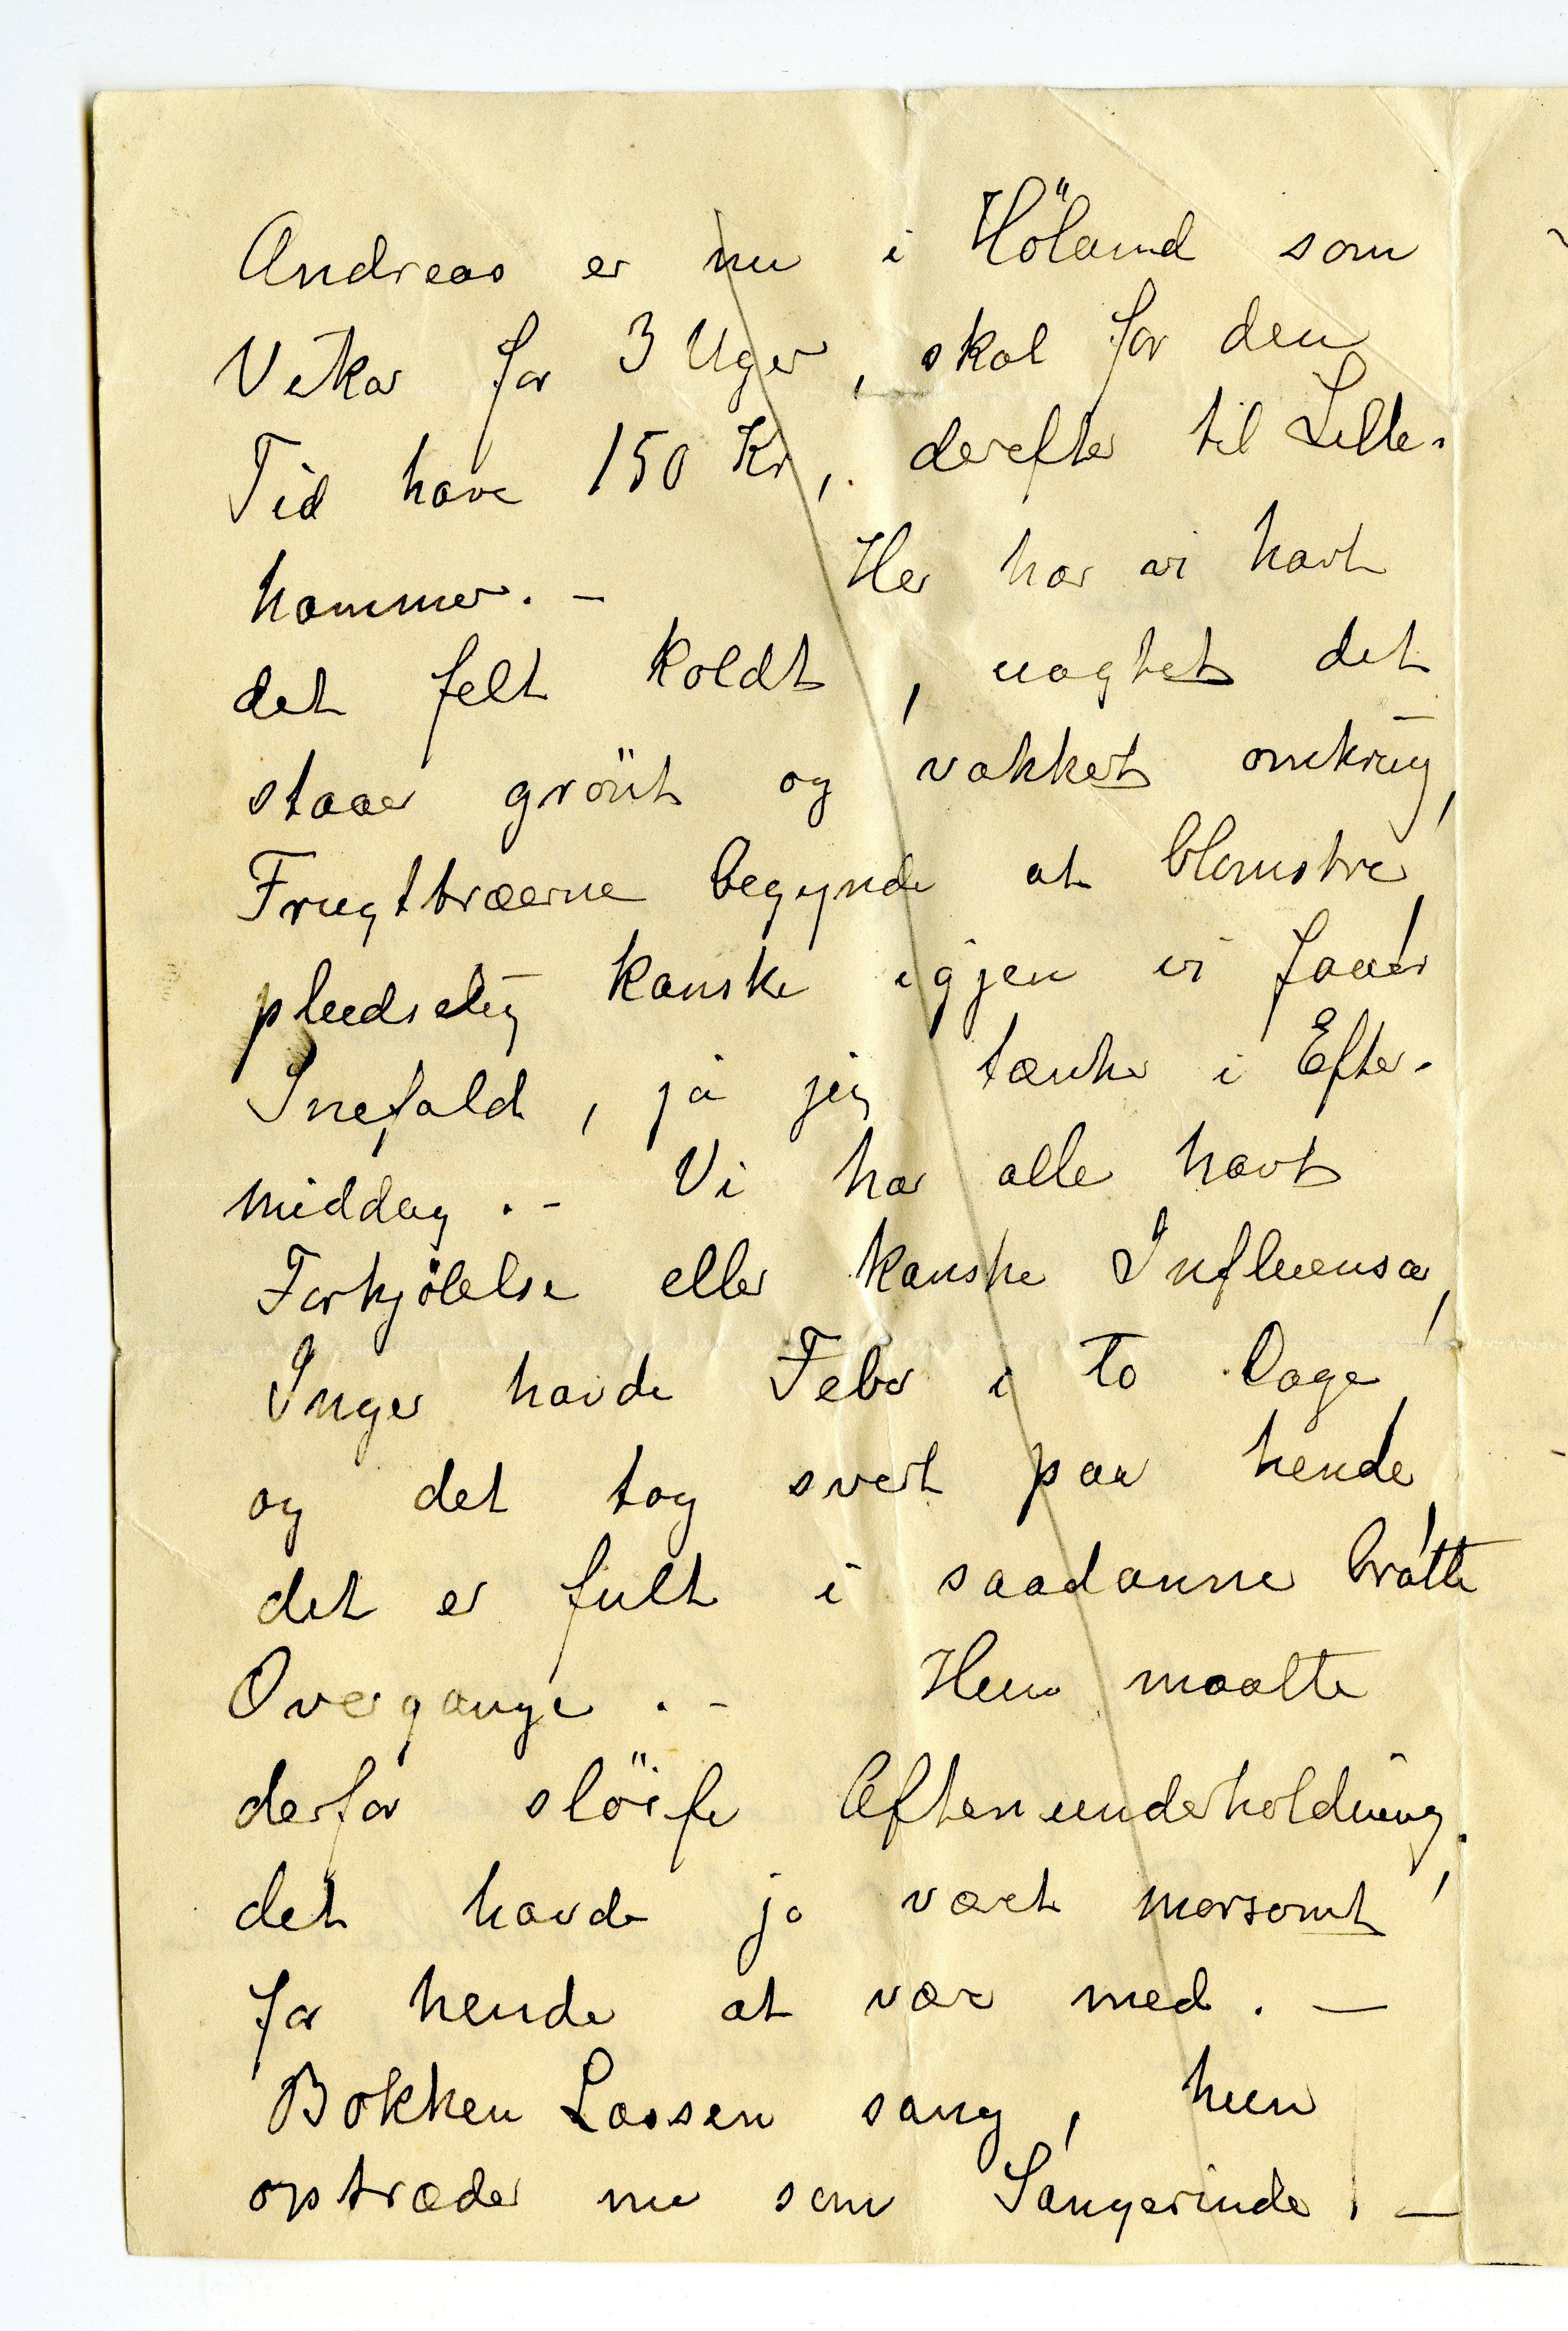 Andreas er nu i Höland som
Vikar for 3 Uger, skal for den
Tid have 150 Kr, derefter til Lille-
hammer. -  Her har vi havt
det felt koldt, uagtet det
staaer grönt og vakkert omkring,
Frugttræerne begynde at blomstre,
pludselig kanske igjen vi faaer
Snefald, ja jeg tænker i Efter-
middag. - Vi har alle havt
Forkjölelse eller kanske Influensa,
Inger havde Feber i to Dage,
og det tog svert paa hende,
det er fult i saadanne bratte
Overgange. -  Hun maatte
derfor slöife Aftenunderholdning,
det havde jo vært morsomt
for hende at være med. —
Bokken Lassen sang, hun
optræder nu som Sangerinde. —